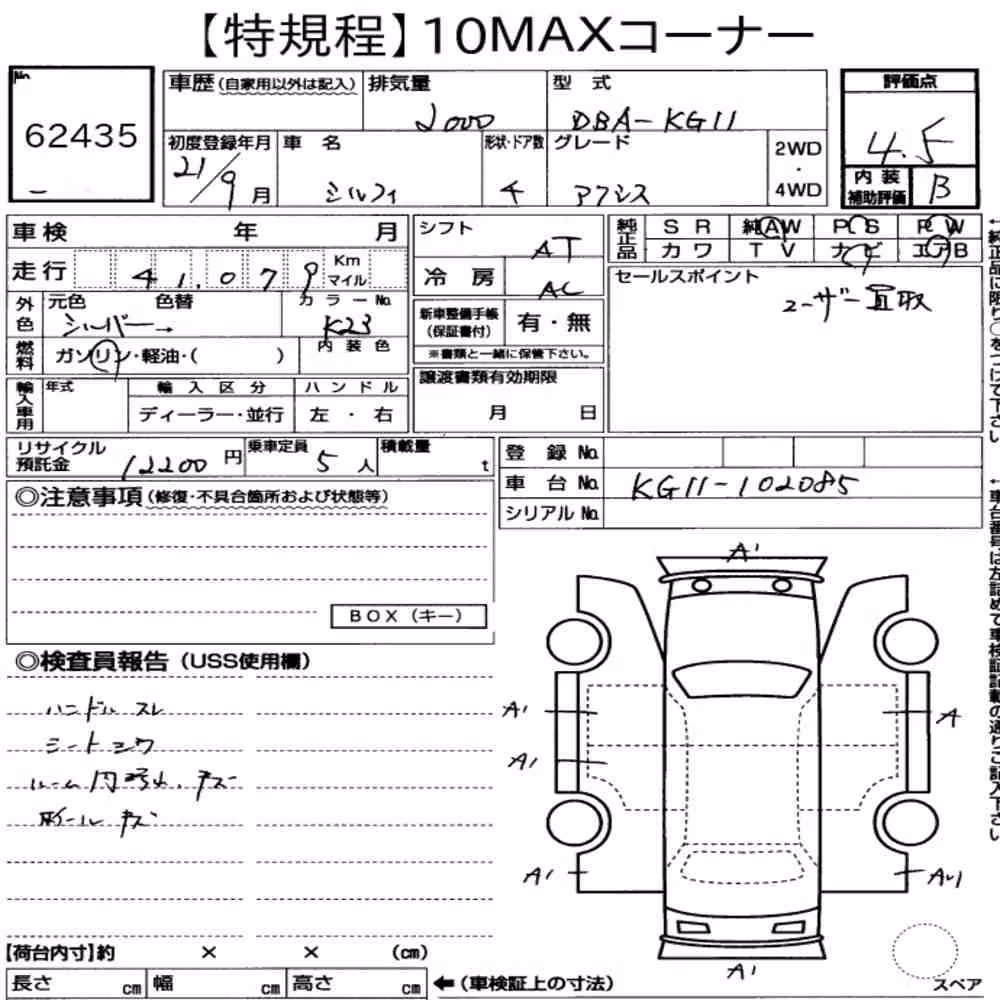 【特規程】10MAXコーナー
No.
62435
車歴(自家用以外は記入)
排気量
2000
型 式
DBA-KG11
評価点
4.5
初度登録年月
21/9月
車 名
シルフィ
形状・ドア数
4
グレード
アクシス
2WD
・
4WD
内 装
補助評価
B
車検 年 月
走行 41,079 Km マイル
外色
元色
シルバー→
色替
カラーNo.
K23
燃料
ガソリン・軽油・( )
内 装 色
輸入車用
年式
輸 入 区 分
ディーラー・並行
ハ ン ド ル
左 ・ 右
シフト
AT
冷 房
AC
新車整備手帳
(保証書付)
有・無
※書類と一緒に保管下さい。
譲渡書類有効期限
月 日
純正品
S R
純AW
PS
PW
カワ
TV
ナビ
エアB
セールスポイント
ユーザー買取
←純正品に限り○をつけて下さい
リサイクル
預託金
12200円
乗車定員
5人
積載量
t
登 録 No.
車 台 No.
KG11-102085
シリアル No.
←車台番号は左詰めで車検証記載の通りご記入下さい
◎注意事項(修復・不具合箇所および状態等)
BOX(キー)
◎検査員報告(USS使用欄)
ハンドル スレ
シート シワ
ルーム内 キズ
ホイール キズ
A1
A1
A
A1
A1
AU1
A1
スペア
【荷台内寸】約 × × (cm)
長さ cm
幅 cm
高さ cm
←(車検証上の寸法)